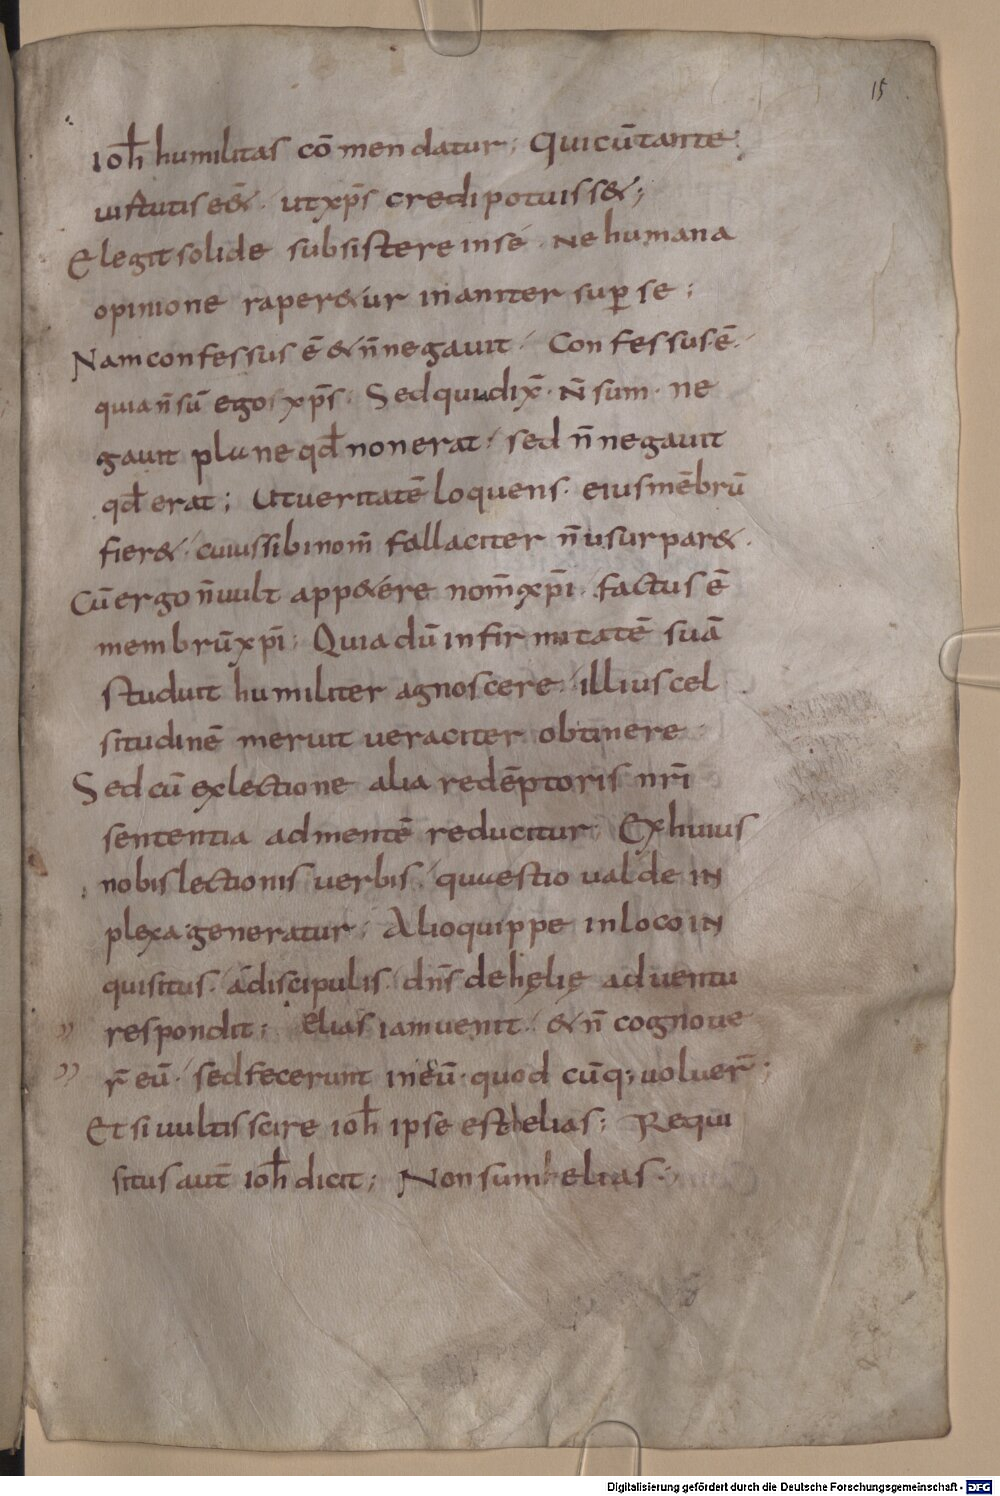 15
ioh̄ humilitas cō mendatur; Qui cū tante
uirtutis eēt & · ut xp̄s credi potuiss&;
Elegit solide subsistere in se · Ne humana
opinione raper&ur inaniter sup̱ se;
Nam confessus ē & n̄ negauit · Confessus ē ·
quia n̄ sū ego xp̄s · Sed qui dix̄ · N̄ sum · ne
gauit plane qđ non erat · sed n̄ negauit
qđ erat; Ut ueritatē loquens · eius mēbrū
fier& · cuius sibi nom̄ fallaciter n̄ usurpar& ·
Cū ergo n̄ uult app&ere nom̄ xp̄i · factus ē
membrū xp̄i; Quia dū infirmitatē suā
studuit humiliter agnoscere · illius cel
situdinē meruit ueraciter obtinere
Sed cū ex lectione alia redēptoris nr̄i
sententia ad mentē reducitur; Ex huius
nobis lectionis uerbis · questio ualde in
plexa generatur; Alio quippe in loco in
quisitus · a discipulis · dn̄s de helię aduentu
respondit; Elias iam uenit · & n̄ cognoue
r̄ eū · sed fecerunt in eū · quod cūq; uoluer̄;
Et si uultis scire ioh̄ ipse est helias; Requi
situs aut̄ ioh̄ dicit; Non sum helias;
Digitalisierung gefördert durch die Deutsche Forschungsgemeinschaft - DFG